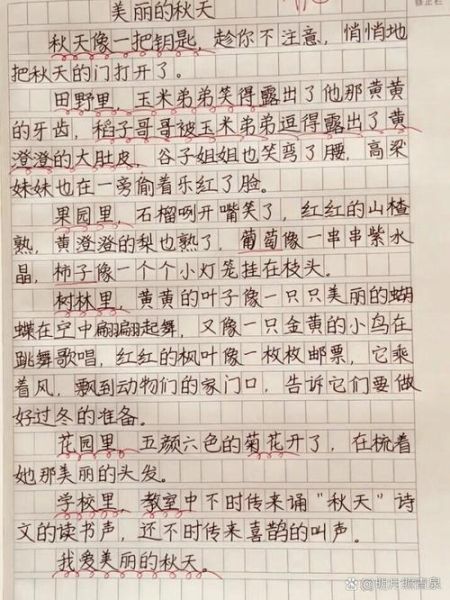 美丽的秋天
秋天像一把钥匙，趁你不注意，悄悄地
把秋天的门打开了。
田野里，玉米弟弟笑得露出了他那黄黄
的牙齿，稻子哥哥被玉米弟弟逗得露出了黄
澄澄的大肚皮，谷子姐姐也笑弯了腰，高梁
妹妹也在一旁偷着乐红了脸。
果园里，石榴咧开嘴笑了，红红的山楂
熟，黄澄澄的梨也熟了，葡萄像一串串紫水
晶，柿子像一个个小灯笼挂在枝头。
树林里，黄黄的叶子像一只只美丽的蝴
蝶在空中翩翩起舞，又像一只金黄的小鸟在
跳舞歌唱，红红的枫叶像一枚枚邮票，它乘
着风，飘到动物们的家门口，告诉它们要做
好过冬的准备。
花园里，五颜六色的菊花开了，在梳着
她那美丽的头发。
学校里，教室中不时传来诵“秋天”诗
文的读书声，还不时传来喜鹊的叫声。
我爱美丽的秋天。